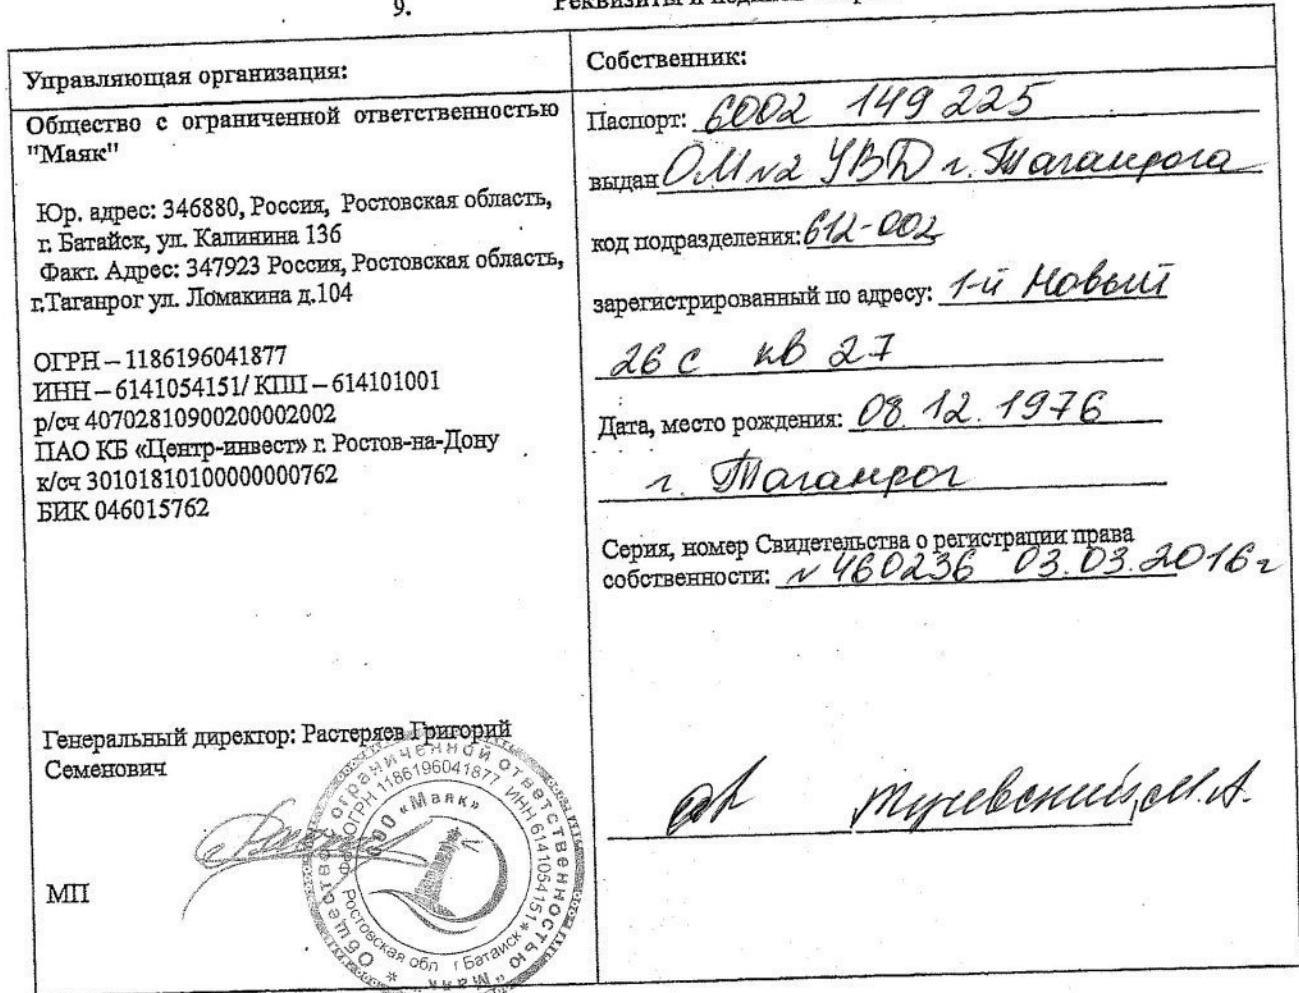 9. Реквизиты и
Управляющая организация:
Общество с ограниченной ответственностью
"Маяк"
Юр. адрес: 346880, Россия, Ростовская область,
г. Батайск, ул. Калинина 136
Факт. Адрес: 347923 Россия, Ростовская область,
г.Таганрог ул. Ломакина д.104
ОГРН – 1186196041877
ИНН – 6141054151/ КПП – 614101001
р/сч 40702810900200002002
ПАО КБ «Центр-инвест» г. Ростов-на-Дону
к/сч 30101810100000000762
БИК 046015762
Генеральный директор: Растеряев Григорий
Семенович
МП
Общество с ограниченной ответственностью "Маяк" *
ОГРН 1186196041877 ИНН 6141054151 *
Ростовская обл г Батайск
ООО «Маяк»
Собственник:
Паспорт: 6002 149 225
выдан ОМ №2 УВД г. Таганрога
код подразделения: 612-002
зарегистрированный по адресу: 1-й Новый
26 с кв 27
Дата, место рождения: 08. 12. 1976
г. Таганрог
Серия, номер Свидетельства о регистрации права
собственности: № 460236 03.03.2016г
М.А.